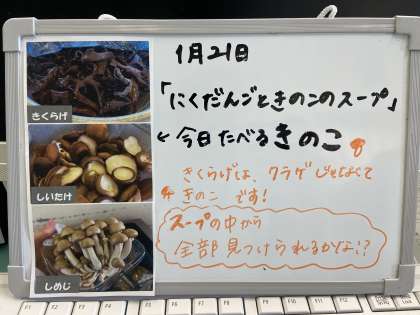 1月21日
「にくだんごときのこのスープ」
←今日たべるきのこ
きくらげは、クラゲじゃなくて
きのこ です!
スープの中から
全部見つけられるかな!?
きくらげ
しいたけ
しめじ
F1 F2 F3 F4 F5 F6 F7 F8 F9 F10 F11 F12